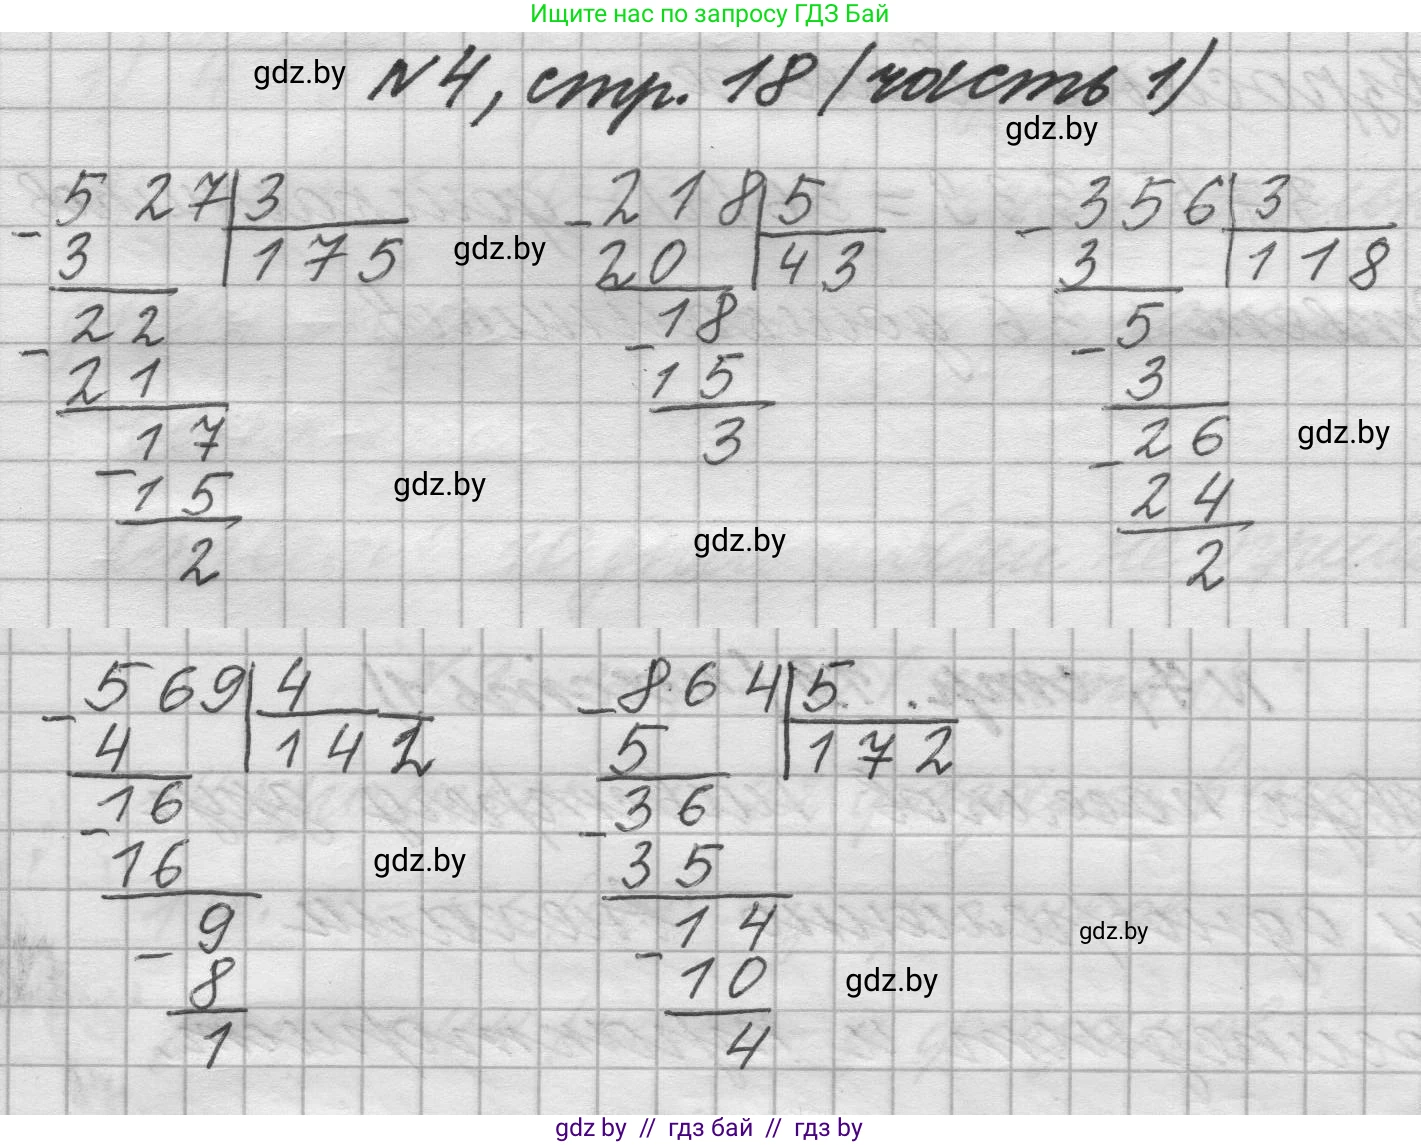 Ищите нас по запросу ГДЗ Бай
gdz.by
№4, стр. 18 (часть 1)
gdz.by
527 3
- 3 175
22
- 21
17
- 15
2
gdz.by
- 218 5
20 43
18
- 15
3
- 356 3
3 118
5
- 3
26
- 24
2
gdz.by
gdz.by
gdz.by
- 569 4
4 142
16
- 16
9
- 8
1
gdz.by
- 864 5
5 172
36
- 35
14
- 10
4
gdz.by
gdz.by
gdz by // гдз бай // гдз by